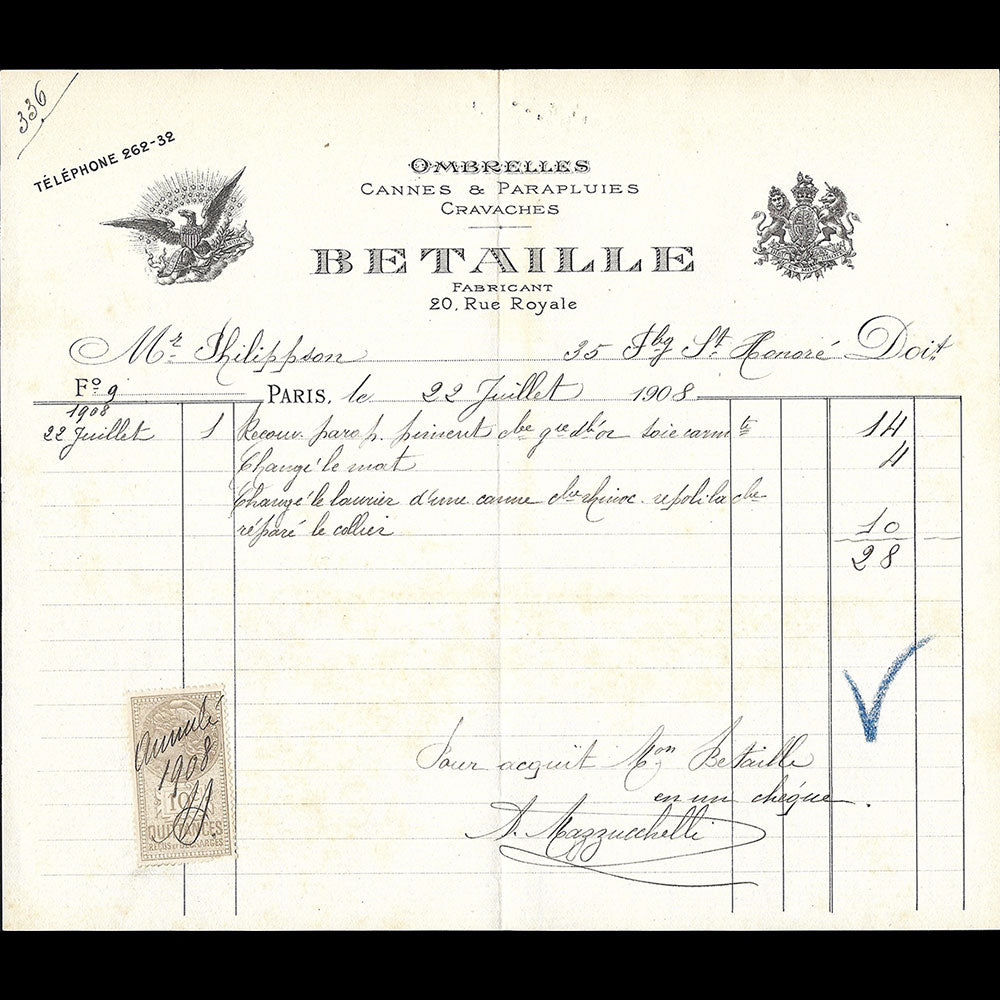 336
TÉLÉPHONE 262-32
OMBRELLES
CANNES & PARAPLUIES
CRAVACHES
BETAILLE
FABRICANT
20, Rue Royale
Mr. Philippson 35 Fbg St. Honoré Doit
Fo. 9 PARIS, le 22 Juillet 1908
1908
22 Juillet 1 Recouv. parap. piment che gre d'or soie carmte 14
Changé le mat 4
Changé le laurier d'une canne rhinoc. repoli la che
réparé le collier 10
28
Annulé
1908
10c
QUITTANCES
REÇUS ET DÉCHARGES
Pour acquit Mon Betaille
en un chéque.
A. Mazzucchelli